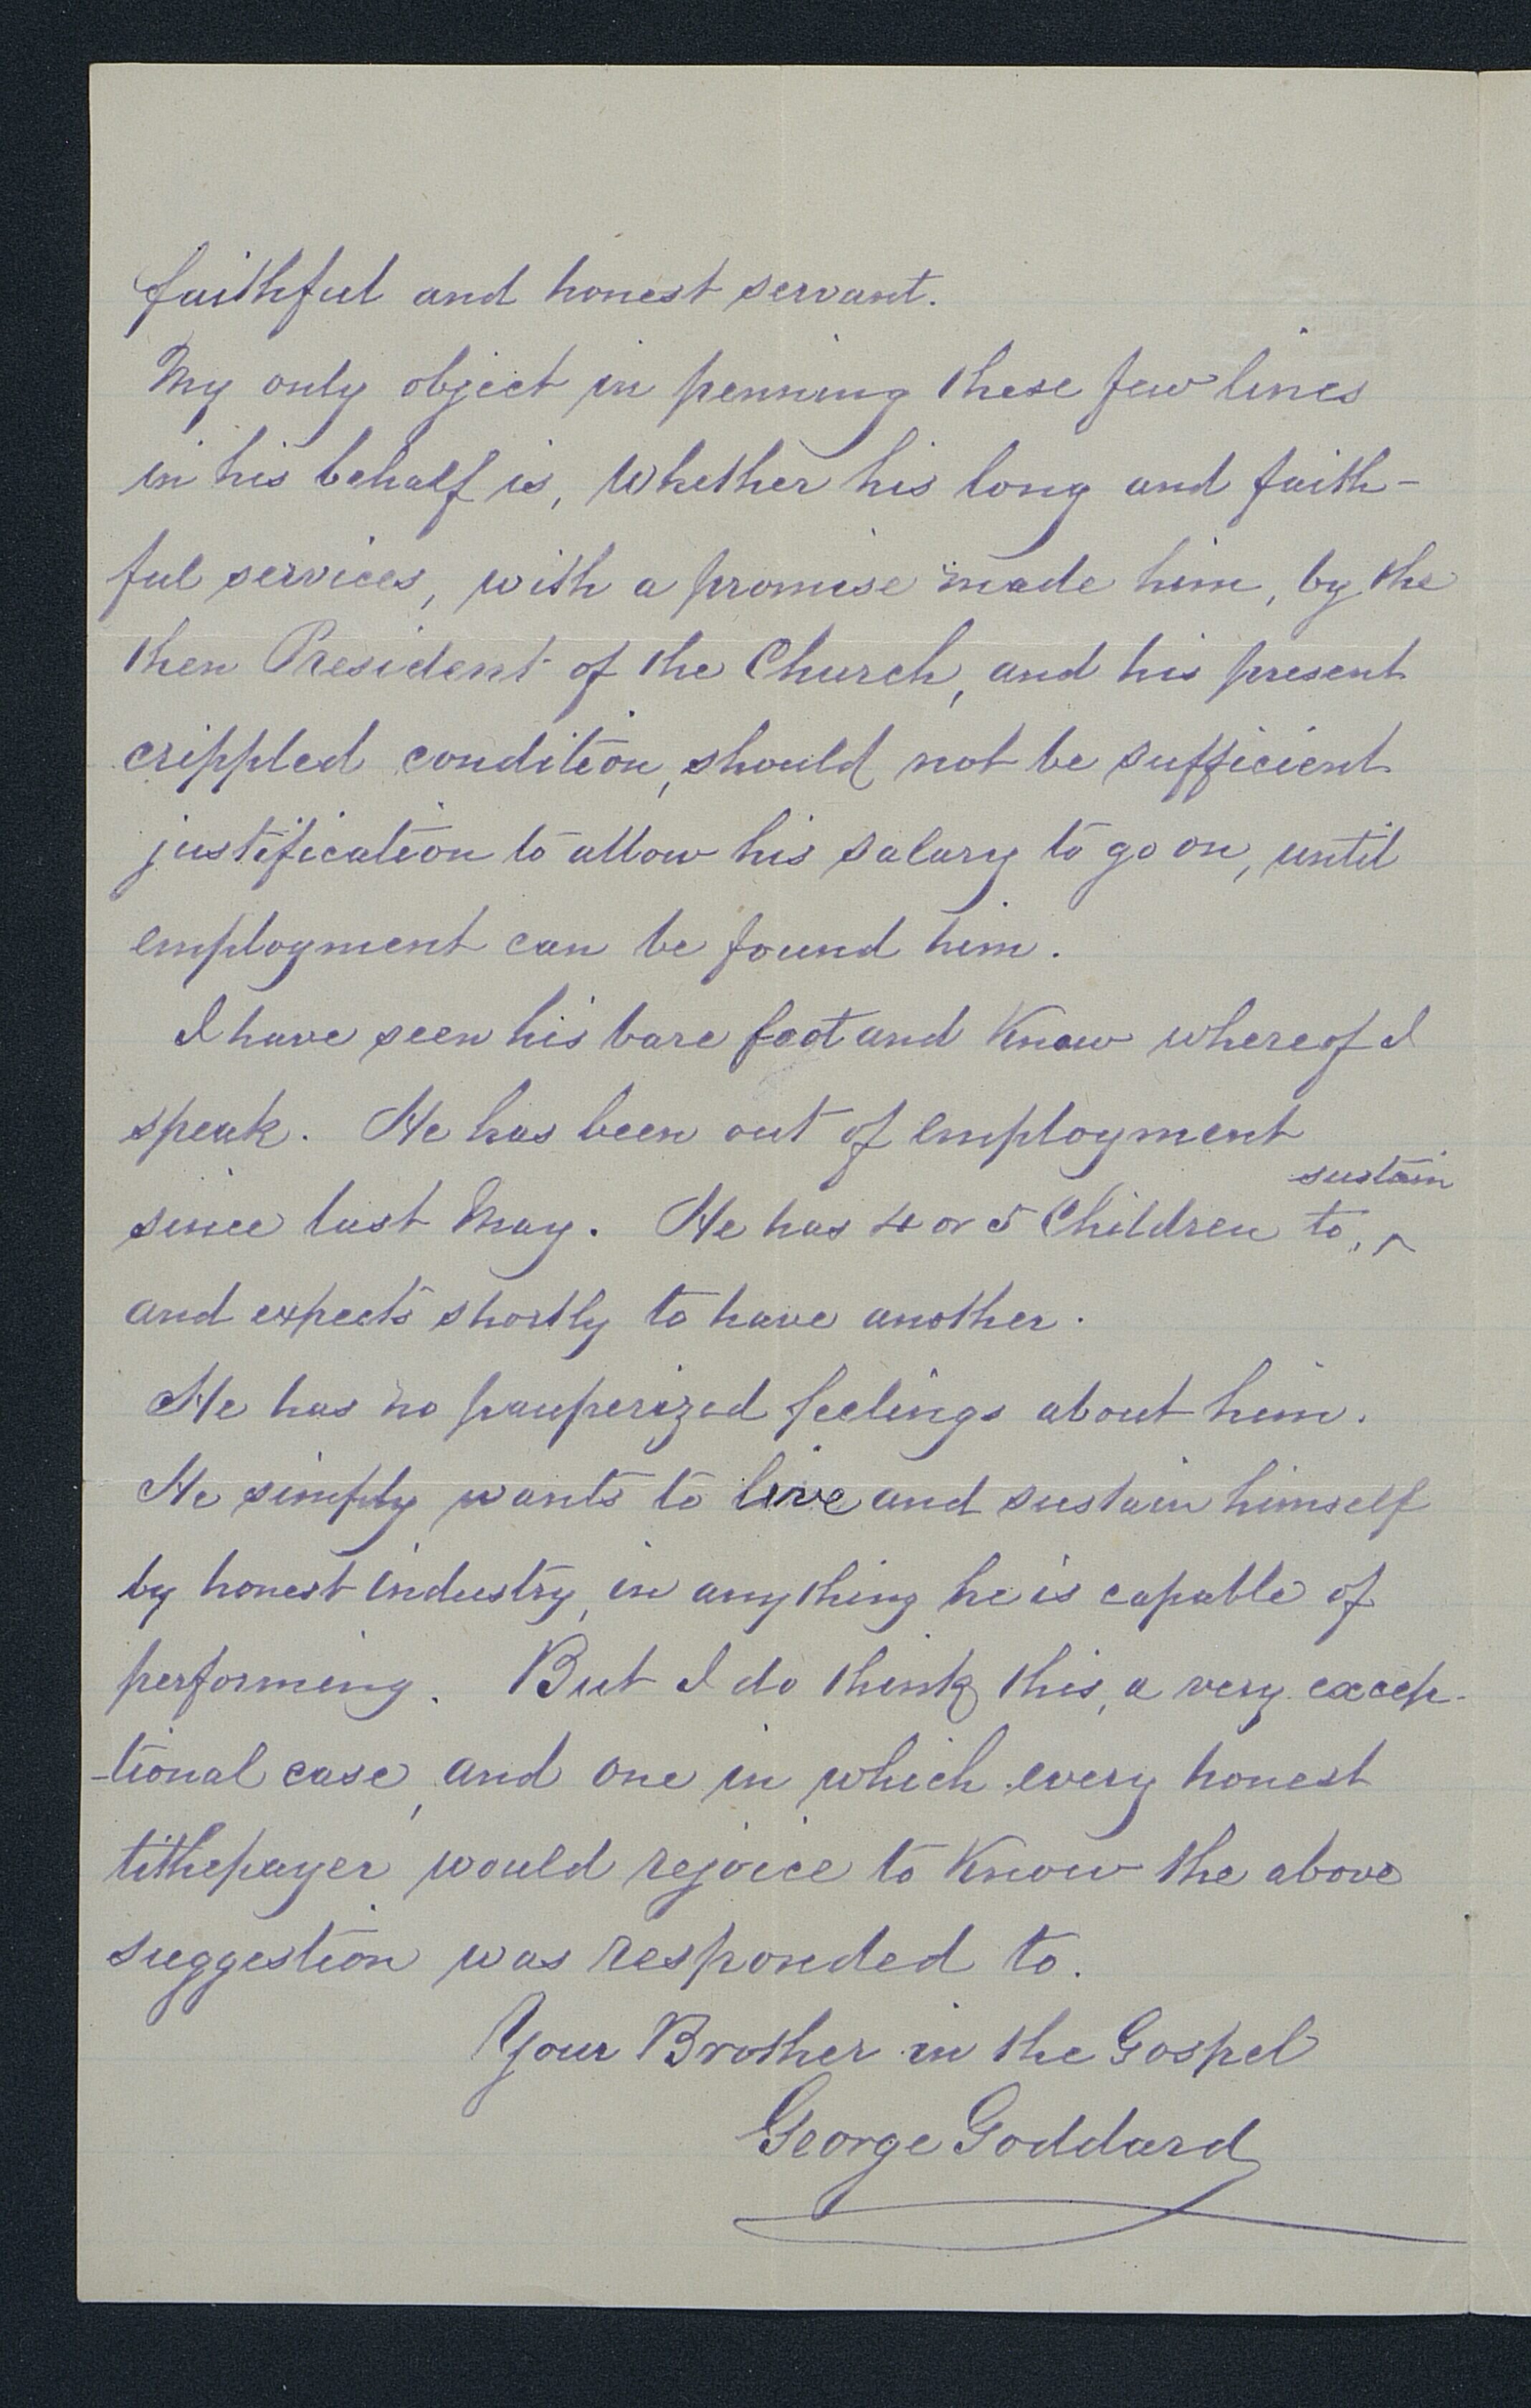 faithful and honest servant.
My only object in penning these few lines
in his behalf is, Whether his long and faith-
ful services, with a promise made him, by the
then President of the Church, and his present
crippled condition, should not be sufficient
justification to allow his salary to go on, until
employment can be found him.
I have seen his bare foot and Know whereof I
speak. He has been out of employment
sustain
since last May. He has 4 or 5 Children to, ^
and expects shortly to have another.
He has no pauperized feelings about him.
He simply wants to live and sustain himself
by honest industry, in any thing he is capable of
performing. But I do think this, a very excep-
-tional case, and one in which every honest
tithepayer would rejoice to Know the above
suggestion was responded to.
Your Brother in the Gospel
George Goddard